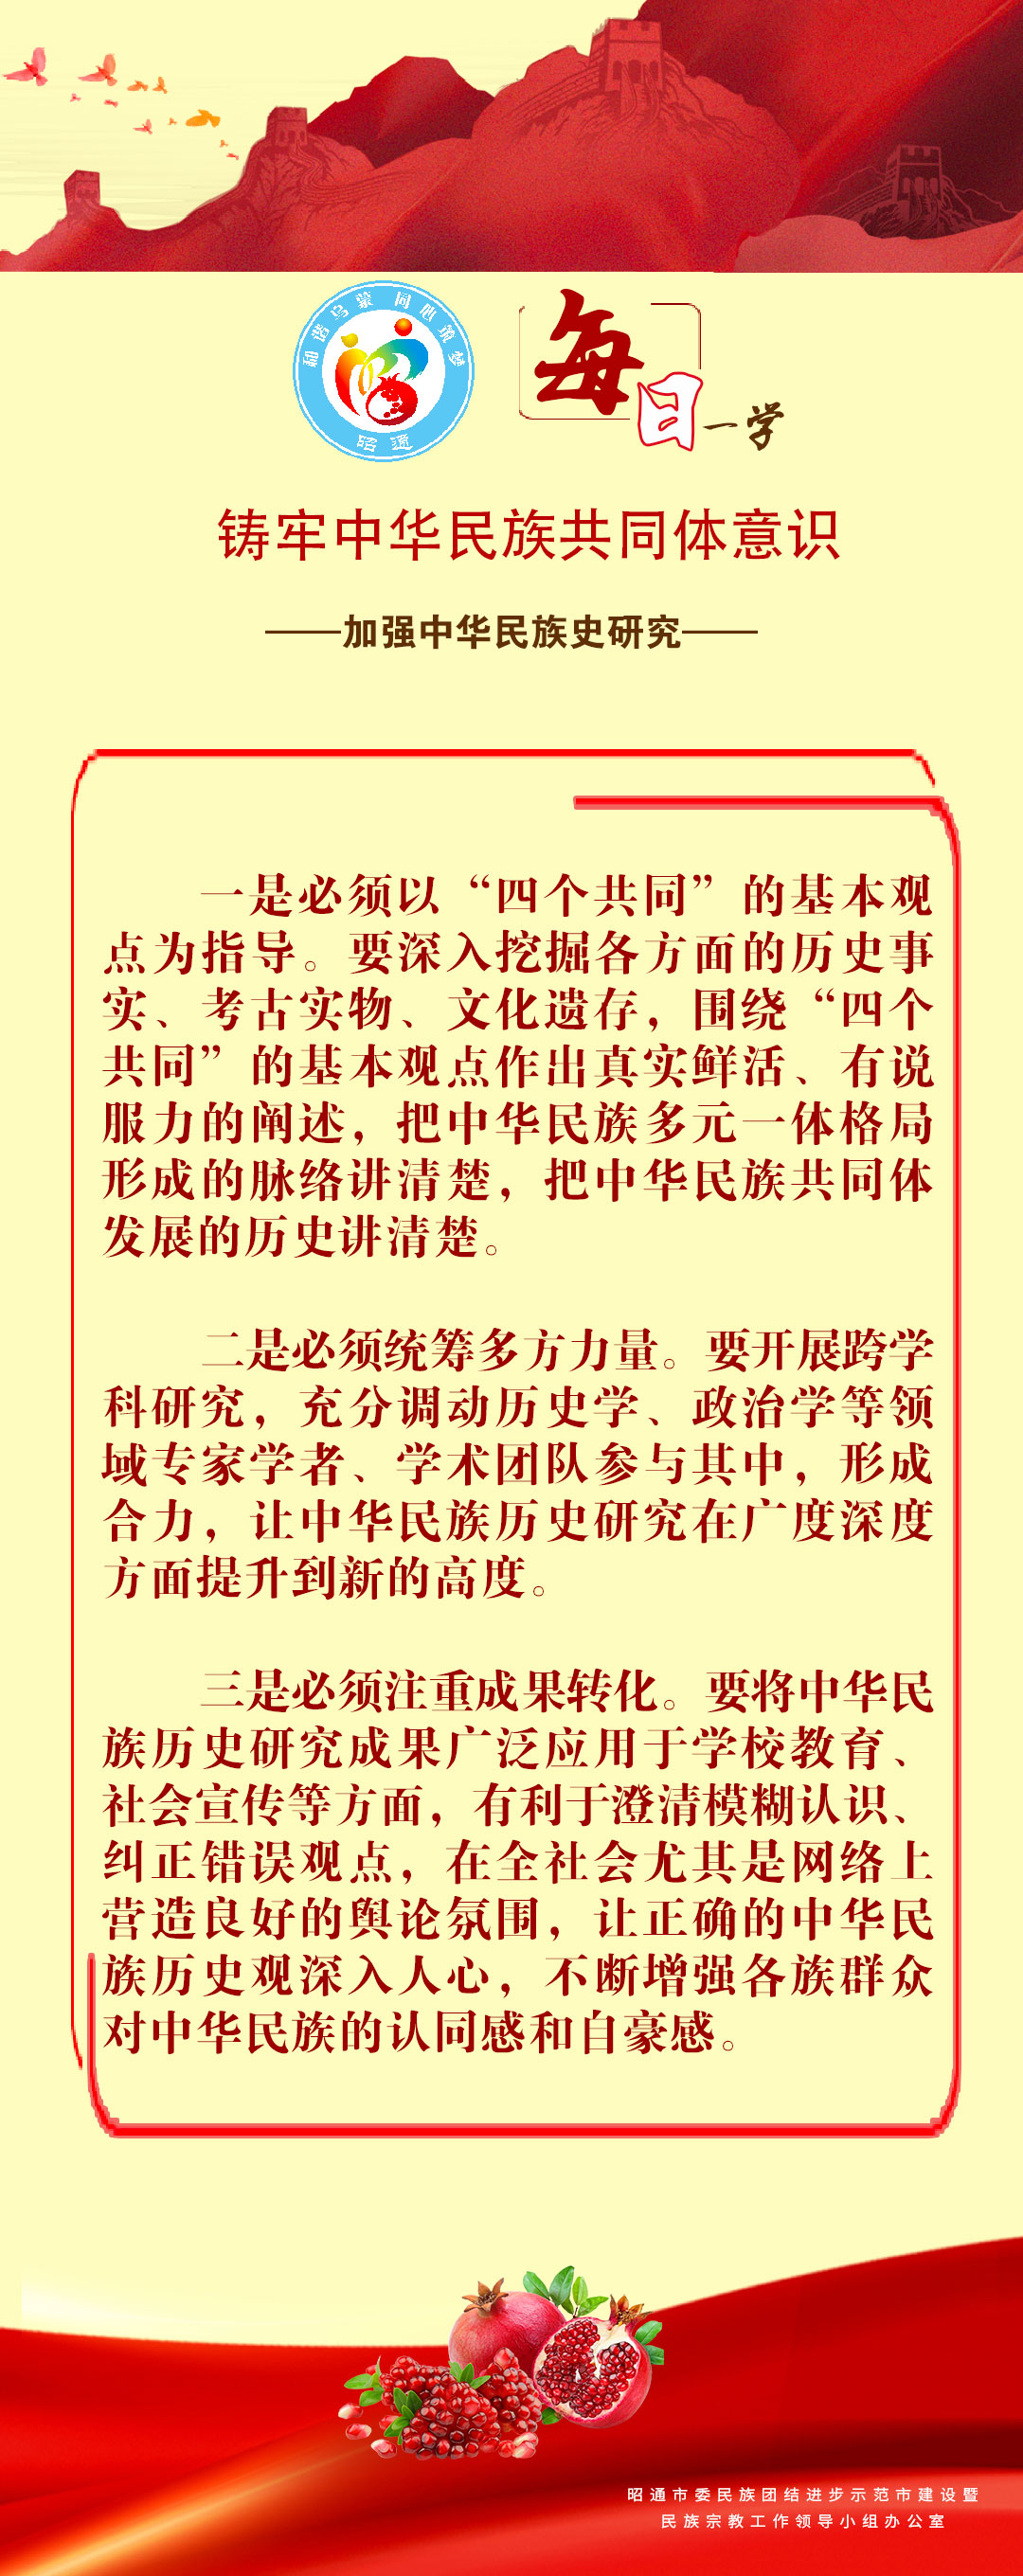 和谐乌蒙 同心筑梦
昭通
每日一学
铸牢中华民族共同体意识
——加强中华民族史研究——
一是必须以“四个共同”的基本观
点为指导。要深入挖掘各方面的历史事
实、考古实物、文化遗存，围绕“四个
共同”的基本观点作出真实鲜活、有说
服力的阐述，把中华民族多元一体格局
形成的脉络讲清楚，把中华民族共同体
发展的历史讲清楚。
二是必须统筹多方力量。要开展跨学
科研究，充分调动历史学、政治学等领
域专家学者、学术团队参与其中，形成
合力，让中华民族历史研究在广度深度
方面提升到新的高度。
三是必须注重成果转化。要将中华民
族历史研究成果广泛应用于学校教育、
社会宣传等方面，有利于澄清模糊认识、
纠正错误观点，在全社会尤其是网络上
营造良好的舆论氛围，让正确的中华民
族历史观深入人心，不断增强各族群众
对中华民族的认同感和自豪感。
昭通市委民族团结进步示范市建设暨
民族宗教工作领导小组办公室